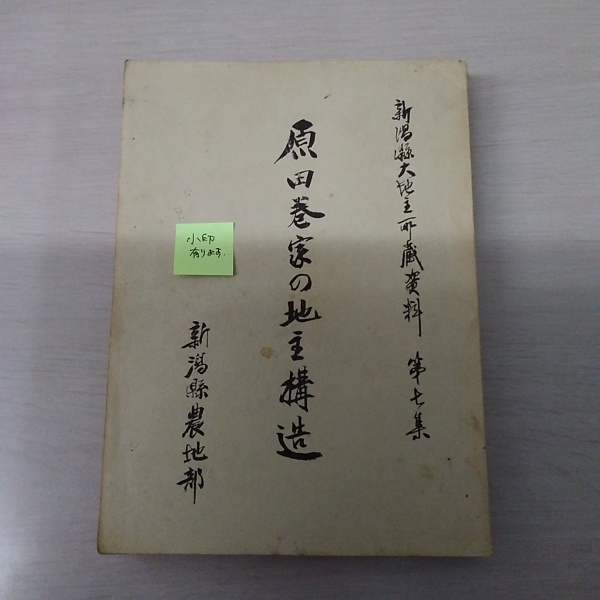 新潟縣大地主所蔵資料 第七集
原田巻家の地主構造
新潟縣農地部
小印
有ります.